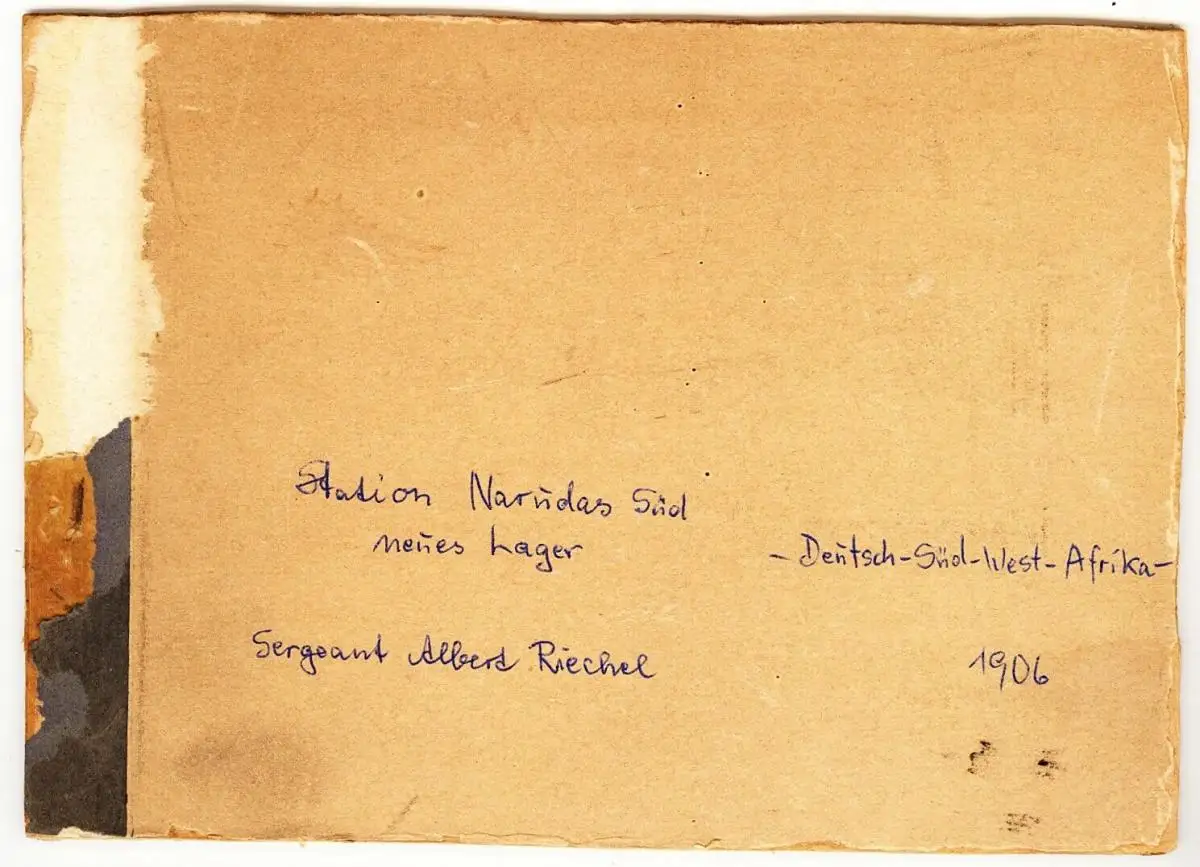 Station Narudas Süd
neues Lager
-Deutsch-Süd-West-Afrika-
Sergeant Albert Riechel
1906